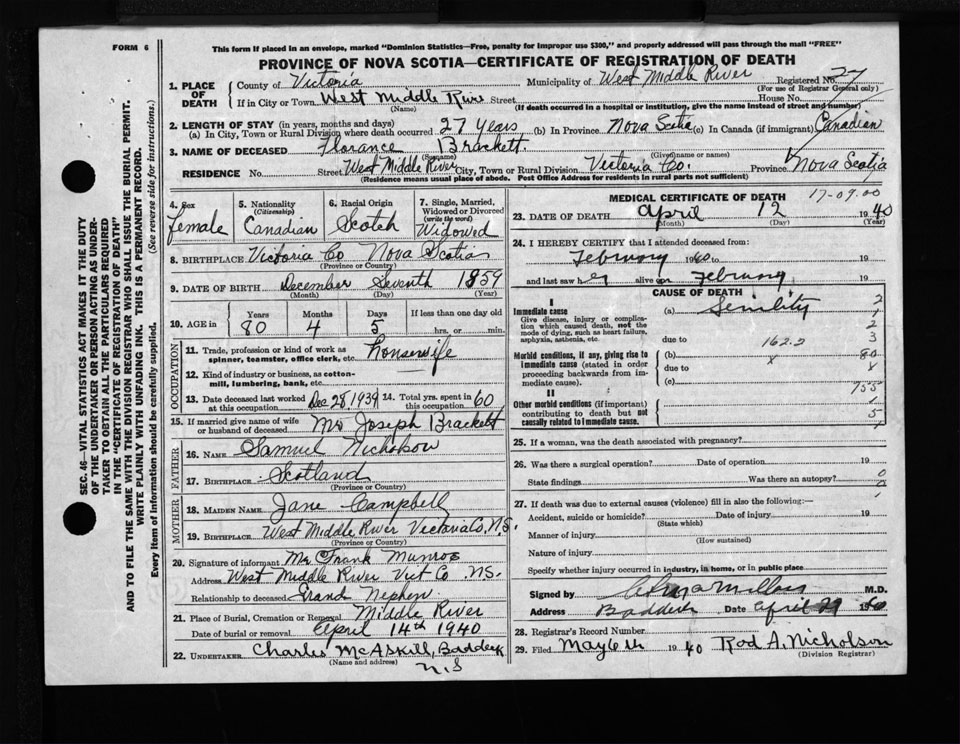 FORM 6
This form if placed in an envelope, marked "Dominion Statistics—Free, penalty for improper use $300," and properly addressed will pass through the mail "FREE"
PROVINCE OF NOVA SCOTIA—CERTIFICATE OF REGISTRATION OF DEATH
SEC. 46—VITAL STATISTICS ACT MAKES IT THE DUTY
OF THE UNDERTAKER OR PERSON ACTING AS UNDER-
TAKER TO OBTAIN ALL THE PARTICULARS REQUIRED
IN THE "CERTIFICATE OF REGISTRATION OF DEATH" AND
TO FILE THE SAME WITH THE DIVISION REGISTRAR WHO SHALL ISSUE THE BURIAL PERMIT.
WRITE PLAINLY WITH UNFADING INK. THIS IS A PERMANENT RECORD.
Every item of information should be carefully supplied. (See reverse side for instructions.)
1. PLACE OF DEATH
County of Victoria Municipality of West Middle River Registered No. 27
(For use of Registrar General only)
If in City or Town West Middle River Street House No.
(Name) (If death occurred in a hospital or institution, give the name instead of street and number)
2. LENGTH OF STAY (in years, months and days)
(a) In City, Town or Rural Division where death occurred 27 years (b) In Province Nova Scotia (c) In Canada (if immigrant) Canadian
3. NAME OF DECEASED Florance Brackett
(Surname) (Given name or names)
RESIDENCE No. Street West Middle River City, Town or Rural Division Victoria Co. Province Nova Scotia
(Residence means usual place of abode. Post Office Address for residents in rural parts not sufficient)
4. Sex
female
5. Nationality
(Citizenship)
Canadian
6. Racial Origin
Scotch
7. Single, Married,
Widowed or Divorced
(write the word)
Widowed
8. BIRTHPLACE Victoria Co Nova Scotia
(Province or Country)
9. DATE OF BIRTH December Seventh 1859
(Month) (Day) (Year)
10. AGE in
Years Months Days If less than one day old
80 4 5 hrs. or min.
OCCUPATION
11. Trade, profession or kind of work as
spinner, teamster, office clerk, etc. housewife
12. Kind of industry or business, as cotton-
mill, lumbering, bank, etc.
13. Date deceased last worked
at this occupation Dec 28 1939 14. Total yrs. spent in
this occupation 60
15. If married give name of wife
or husband of deceased Mr Joseph Brackett
FATHER
16. NAME Samuel Nicholson
17. BIRTHPLACE Scotland
(Province or Country)
MOTHER
18. MAIDEN NAME Jane Campbell
19. BIRTHPLACE West Middle River Victoria Co, N.S.
(Province or Country)
20. Signature of informant Mr Frank Munroe
Address West Middle River Vict Co N.S.
Relationship to deceased Grand Nephew
21. Place of Burial, Cremation or Removal Middle River
Date of burial or removal April 14th 1940
22. UNDERTAKER Charles McAskill, Baddeck
(Name and address) N.S
MEDICAL CERTIFICATE OF DEATH 17-09.00
23. DATE OF DEATH April 12 1940
(Month) (Day)
24. I HEREBY CERTIFY that I attended deceased from:
February 1940 to 19
and last saw h er alive on February 19
CAUSE OF DEATH
I
Immediate cause
Give disease, injury or complica-
tion which caused death, not the
mode of dying, such as heart failure,
asphyxia, asthenia, etc.
(a) Senility
due to 162.2
Morbid conditions, if any, giving rise to
immediate cause (stated in order
proceeding backwards from im-
mediate cause).
(b) x
due to
(c)
II
Other morbid conditions (if important)
contributing to death but not
causally related to immediate cause.
2
1
2
3
80
8
755
1
5
1
25. If a woman, was the death associated with pregnancy?
26. Was there a surgical operation? Date of operation 19
State findings Was there an autopsy?
0
0
27. If death was due to external causes (violence) fill in also the following:—
Accident, suicide or homicide? Date of injury 19
(State which)
Manner of injury
(How sustained)
Nature of injury
Specify whether injury occurred in industry, in home, or in public place
Signed by M.D.
Address Baddeck Date April 29 1940
28. Registrar's Record Number
29. Filed May 6th 1940 Rod A. Nicholson
(Division Registrar)